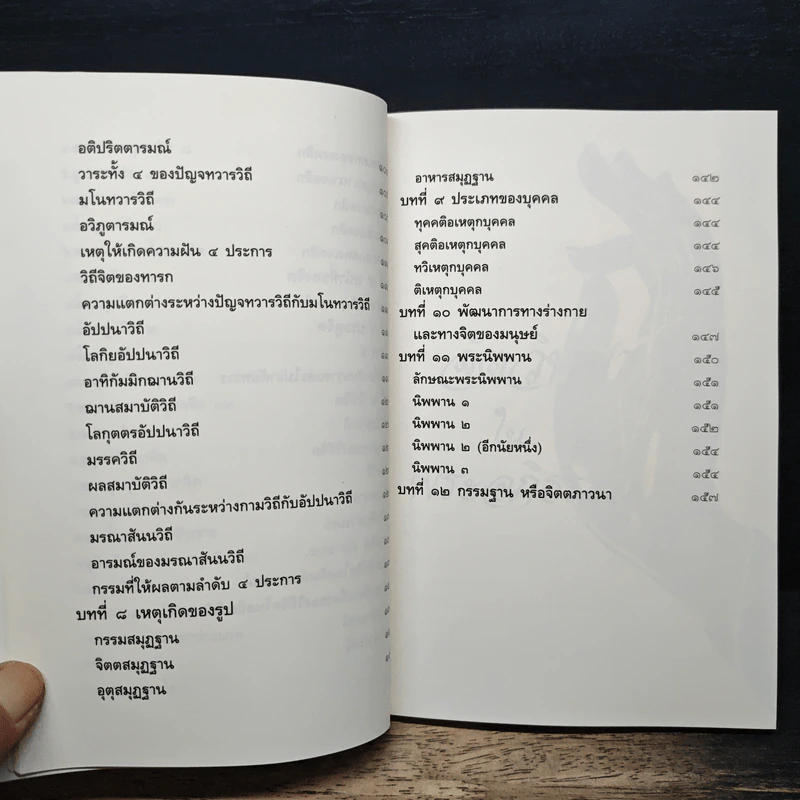 อติปริตตารมณ์
วาระทั้ง ๔ ของปัญจทวารวิถี
มโนทวารวิถี
อวิภูตารมณ์
เหตุให้เกิดความฝัน ๔ ประการ
วิถีจิตของทารก
ความแตกต่างระหว่างปัญจทวารวิถีกับมโนทวารวิถี
อัปปนาวิถี
โลกิยอัปปนาวิถี
อาทิกัมมิกฌานวิถี
ฌานสมาบัติวิถี
โลกุตตรอัปปนาวิถี
มรรควิถี
ผลสมาบัติวิถี
ความแตกต่างกันระหว่างกามวิถีกับอัปปนาวิถี
มรณาสันนวิถี
อารมณ์ของมรณาสันนวิถี
กรรมที่ให้ผลตามลำดับ ๔ ประการ
บทที่ ๘ เหตุเกิดของรูป
กรรมสมุฏฐาน
จิตตสมุฏฐาน
อุตุสมุฏฐาน
อาหารสมุฏฐาน ๑๔๒
บทที่ ๙ ประเภทของบุคคล ๑๔๔
ทุคคติอเหตุกบุคคล ๑๔๔
สุคติอเหตุกบุคคล ๑๔๔
ทวิเหตุกบุคคล ๑๔๖
ติเหตุกบุคคล ๑๔๕
บทที่ ๑๐ พัฒนาการทางร่างกาย
และทางจิตของมนุษย์ ๑๔๗
บทที่ ๑๑ พระนิพพาน ๑๕๐
ลักษณะพระนิพพาน ๑๕๑
นิพพาน ๑ ๑๕๑
นิพพาน ๒ ๑๕๒
นิพพาน ๒ (อีกนัยหนึ่ง) ๑๕๔
นิพพาน ๓ ๑๕๔
บทที่ ๑๒ กรรมฐาน หรือจิตตภาวนา ๑๕๗